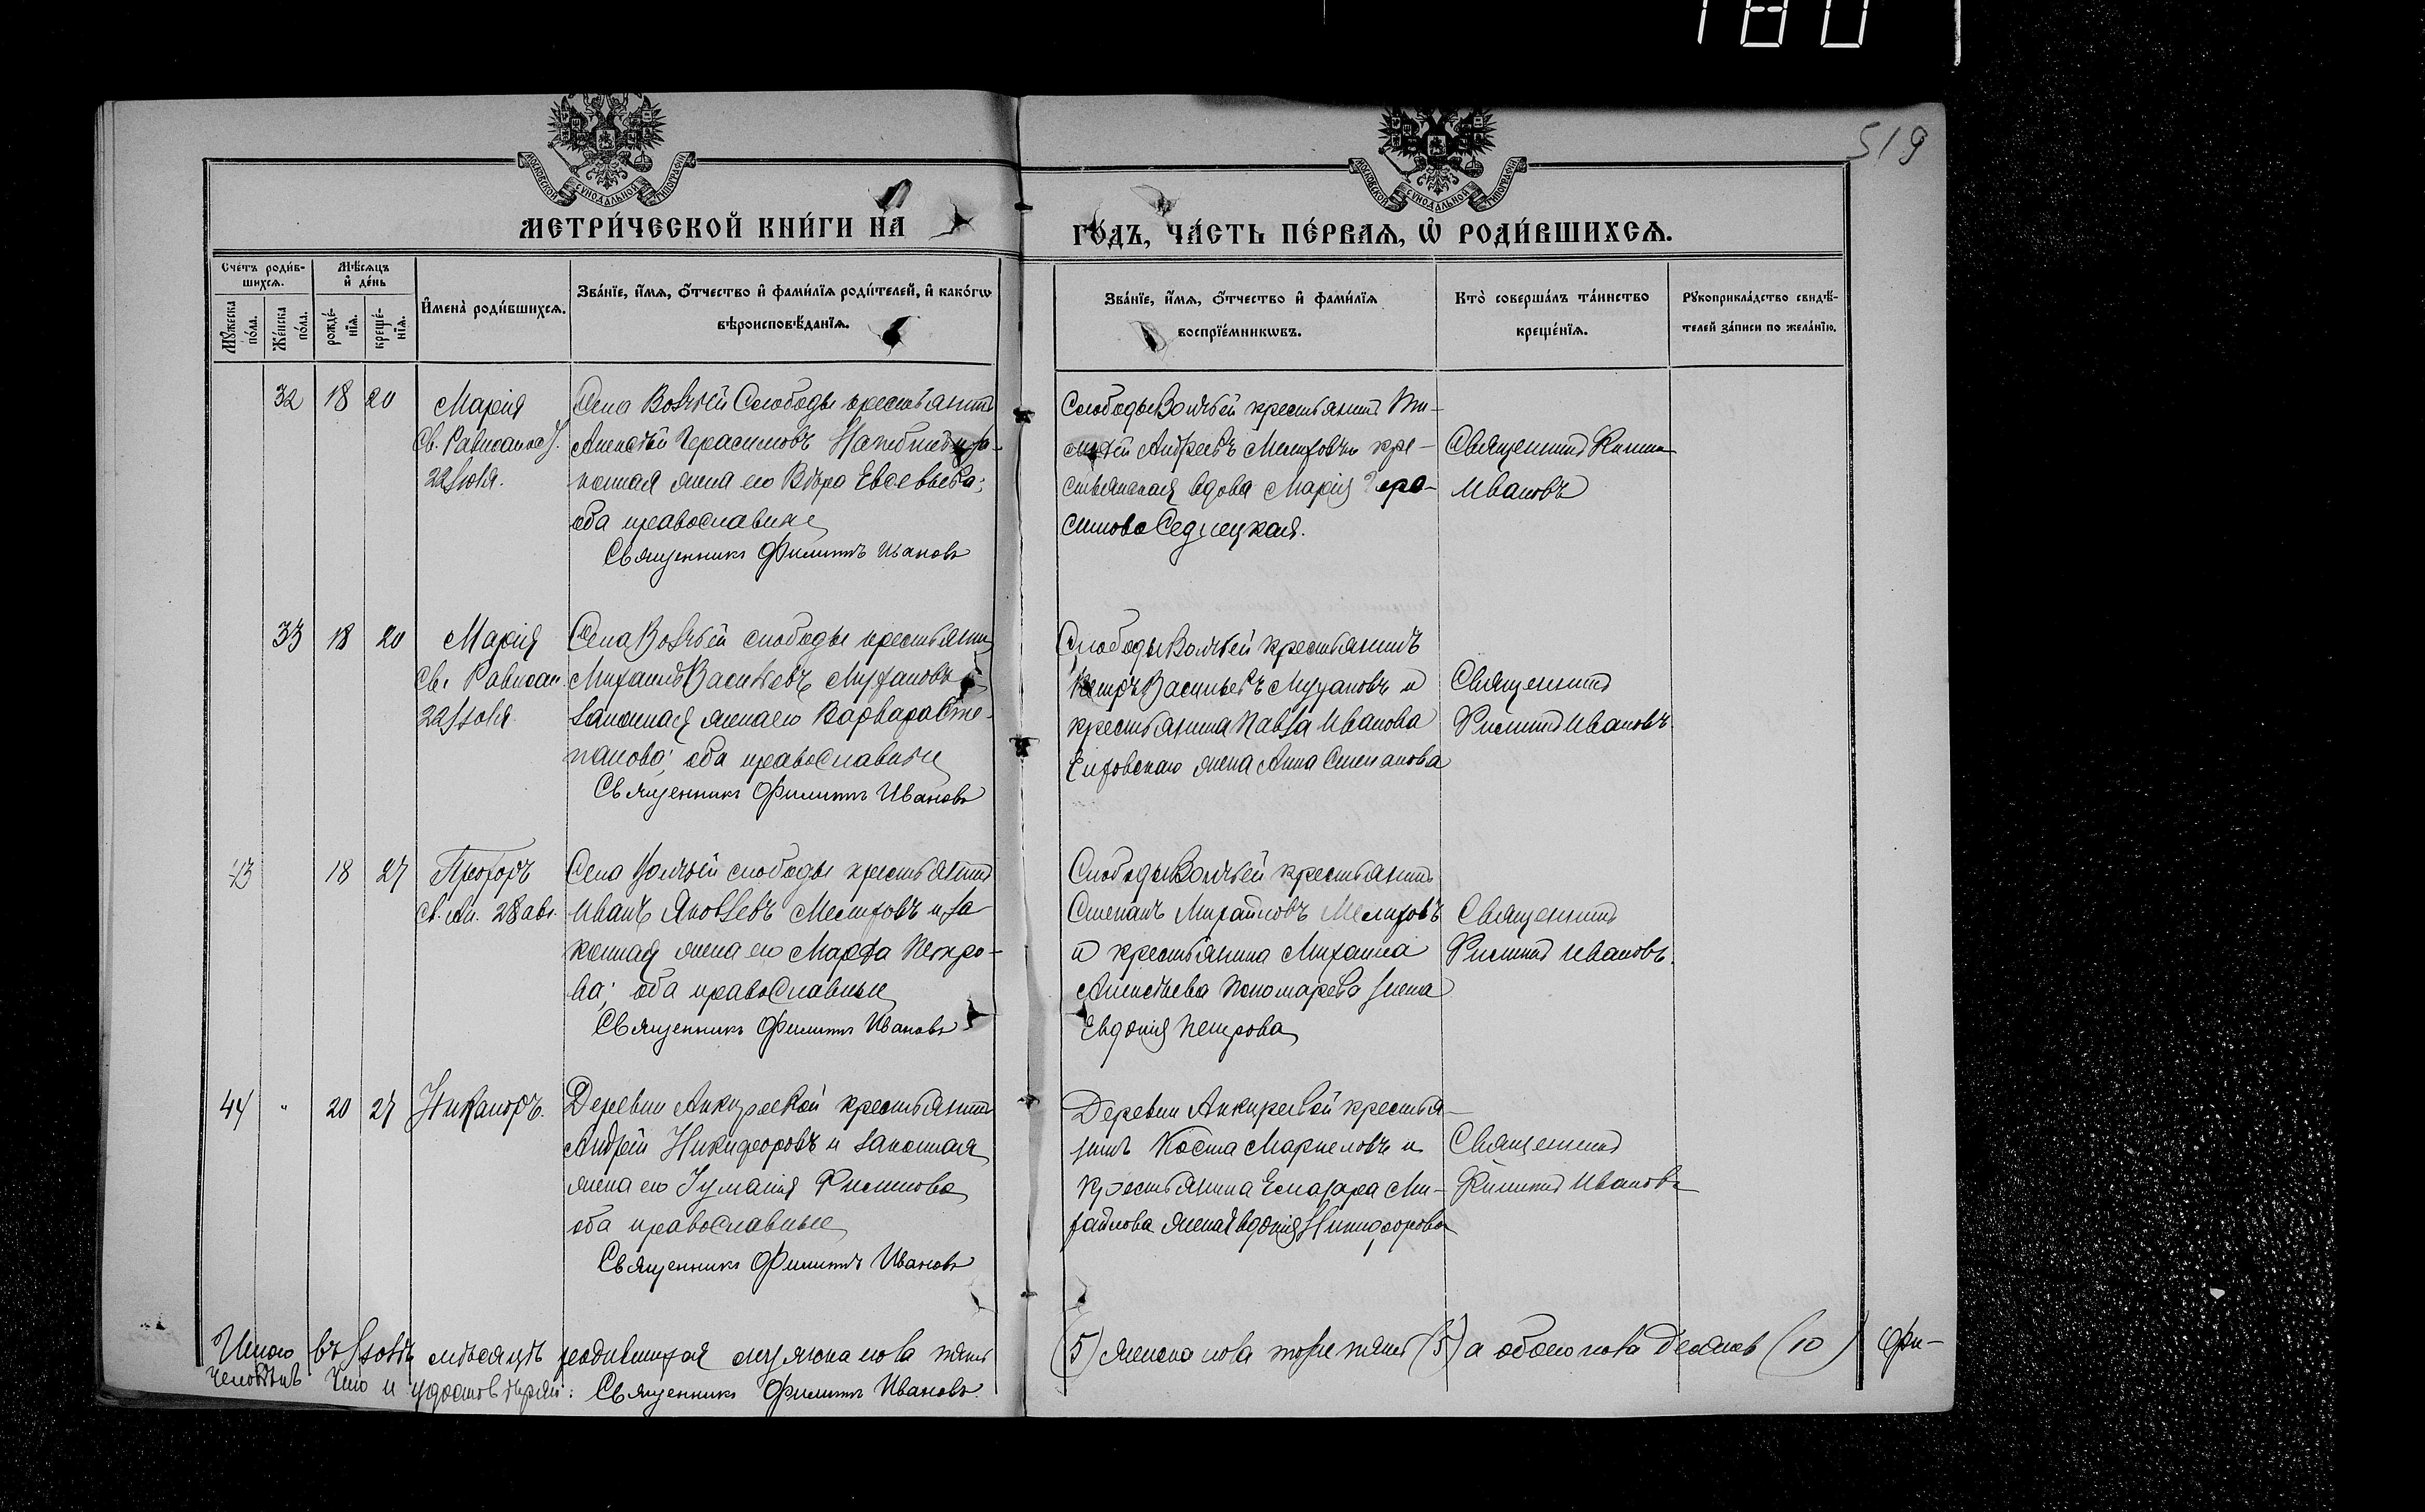 180
519
МОСКОВСКОЙ СУНОДАЛЬНОЙ ТИПОГРАФІИ
МОСКОВСКОЙ СУНОДАЛЬНОЙ ТИПОГРАФІИ
МЕТРИ́ЧЕСКОЙ КНИ́ГИ НА
ГО́ДЪ, ЧА́СТЬ ПЕ́РВАѦ, Ѡ РОДИ́ВШИХСѦ.
Сче́тъ роди́в-
шихсѧ.
Мꙋ́жеска по́ла.
Же́нска по́ла.
Мѣ́сѧцъ и де́нь
рожде́-нїѧ.
креще́-нїѧ.
И҆мена̀ роди́вшихсѧ.
Зва́нїе, и҆́мѧ, ѻ҆́тчество и҆ фами́лїѧ роди́телей, и҆ како́гѡ
вѣроисповѣ́данїѧ.
Зва́нїе, и҆́мѧ, ѻ҆́тчество и҆ фами́лїѧ
воспрїе́мникѡвъ.
Кто̀ соверша́лъ та́инство
креще́нїѧ.
Рꙋкоприкла́дство свидѣ́-
телей за́писи по жела́нїю.
32 18 20
Марія
Св. Равноапос.
22 Іюля.
Села Волчьей Слободы крестьянинъ
Алексѣй Герасимовъ и за-
конная жена его Вѣра Евсевьева;
оба православные
Священникъ Филиппъ Ивановъ
Слободы Волчьей крестьянинъ Ти-
моѳей Андреевъ Мелиховъ и кре-
стьянская вдова Марія Гера-
симова Седлецкая.
Священникъ Филиппъ
Ивановъ
33 18 20
Марія
Св. Равноап.
22 Іюля
Села Волчьей слободы крестьянинъ
Михаилъ Васильевъ и
законная жена его Варвара Сте-
панова; оба православные
Священникъ Филиппъ Ивановъ
Слободы Волчьей крестьянинъ
Петръ Васильевъ и
крестьянина Павла Иванова
жена Анна Степанова
Священникъ
Филиппъ Ивановъ.
43 18 27
Прохоръ
Св. Ап. 28 авг.
Села Волчьей слободы крестьянинъ
Иванъ Яковлевъ Мелиховъ и за-
конная жена его Марѳа Петро-
ва; оба православные
Священникъ Филиппъ Ивановъ
Слободы Волчьей крестьянинъ
Степанъ Михайловъ Мелиховъ
и крестьянина Михаила
Алексѣева Пономарева жена
Евдокія Петрова
Священникъ
Филиппъ Ивановъ.
44 " 20 27
Никаноръ.
Деревни крестьянинъ
Андрей Никифоровъ и законная
жена его Іуліанія Филипова
оба православные
Священникъ Филиппъ Ивановъ
Деревни крестья-
нинъ Косма Маркеловъ и
крестьянина Елазара Ми-
хайлова жена Евдокія Никифорова
Священникъ
Филиппъ Ивановъ
Итого въ Іюлѣ мѣсяцѣ родившихся мужска пола пять (5) женска пола тоже пять (5) а обоего пола десять (10) Фи-
человѣкъ что и удостовѣряю: Священникъ Филиппъ Ивановъ.